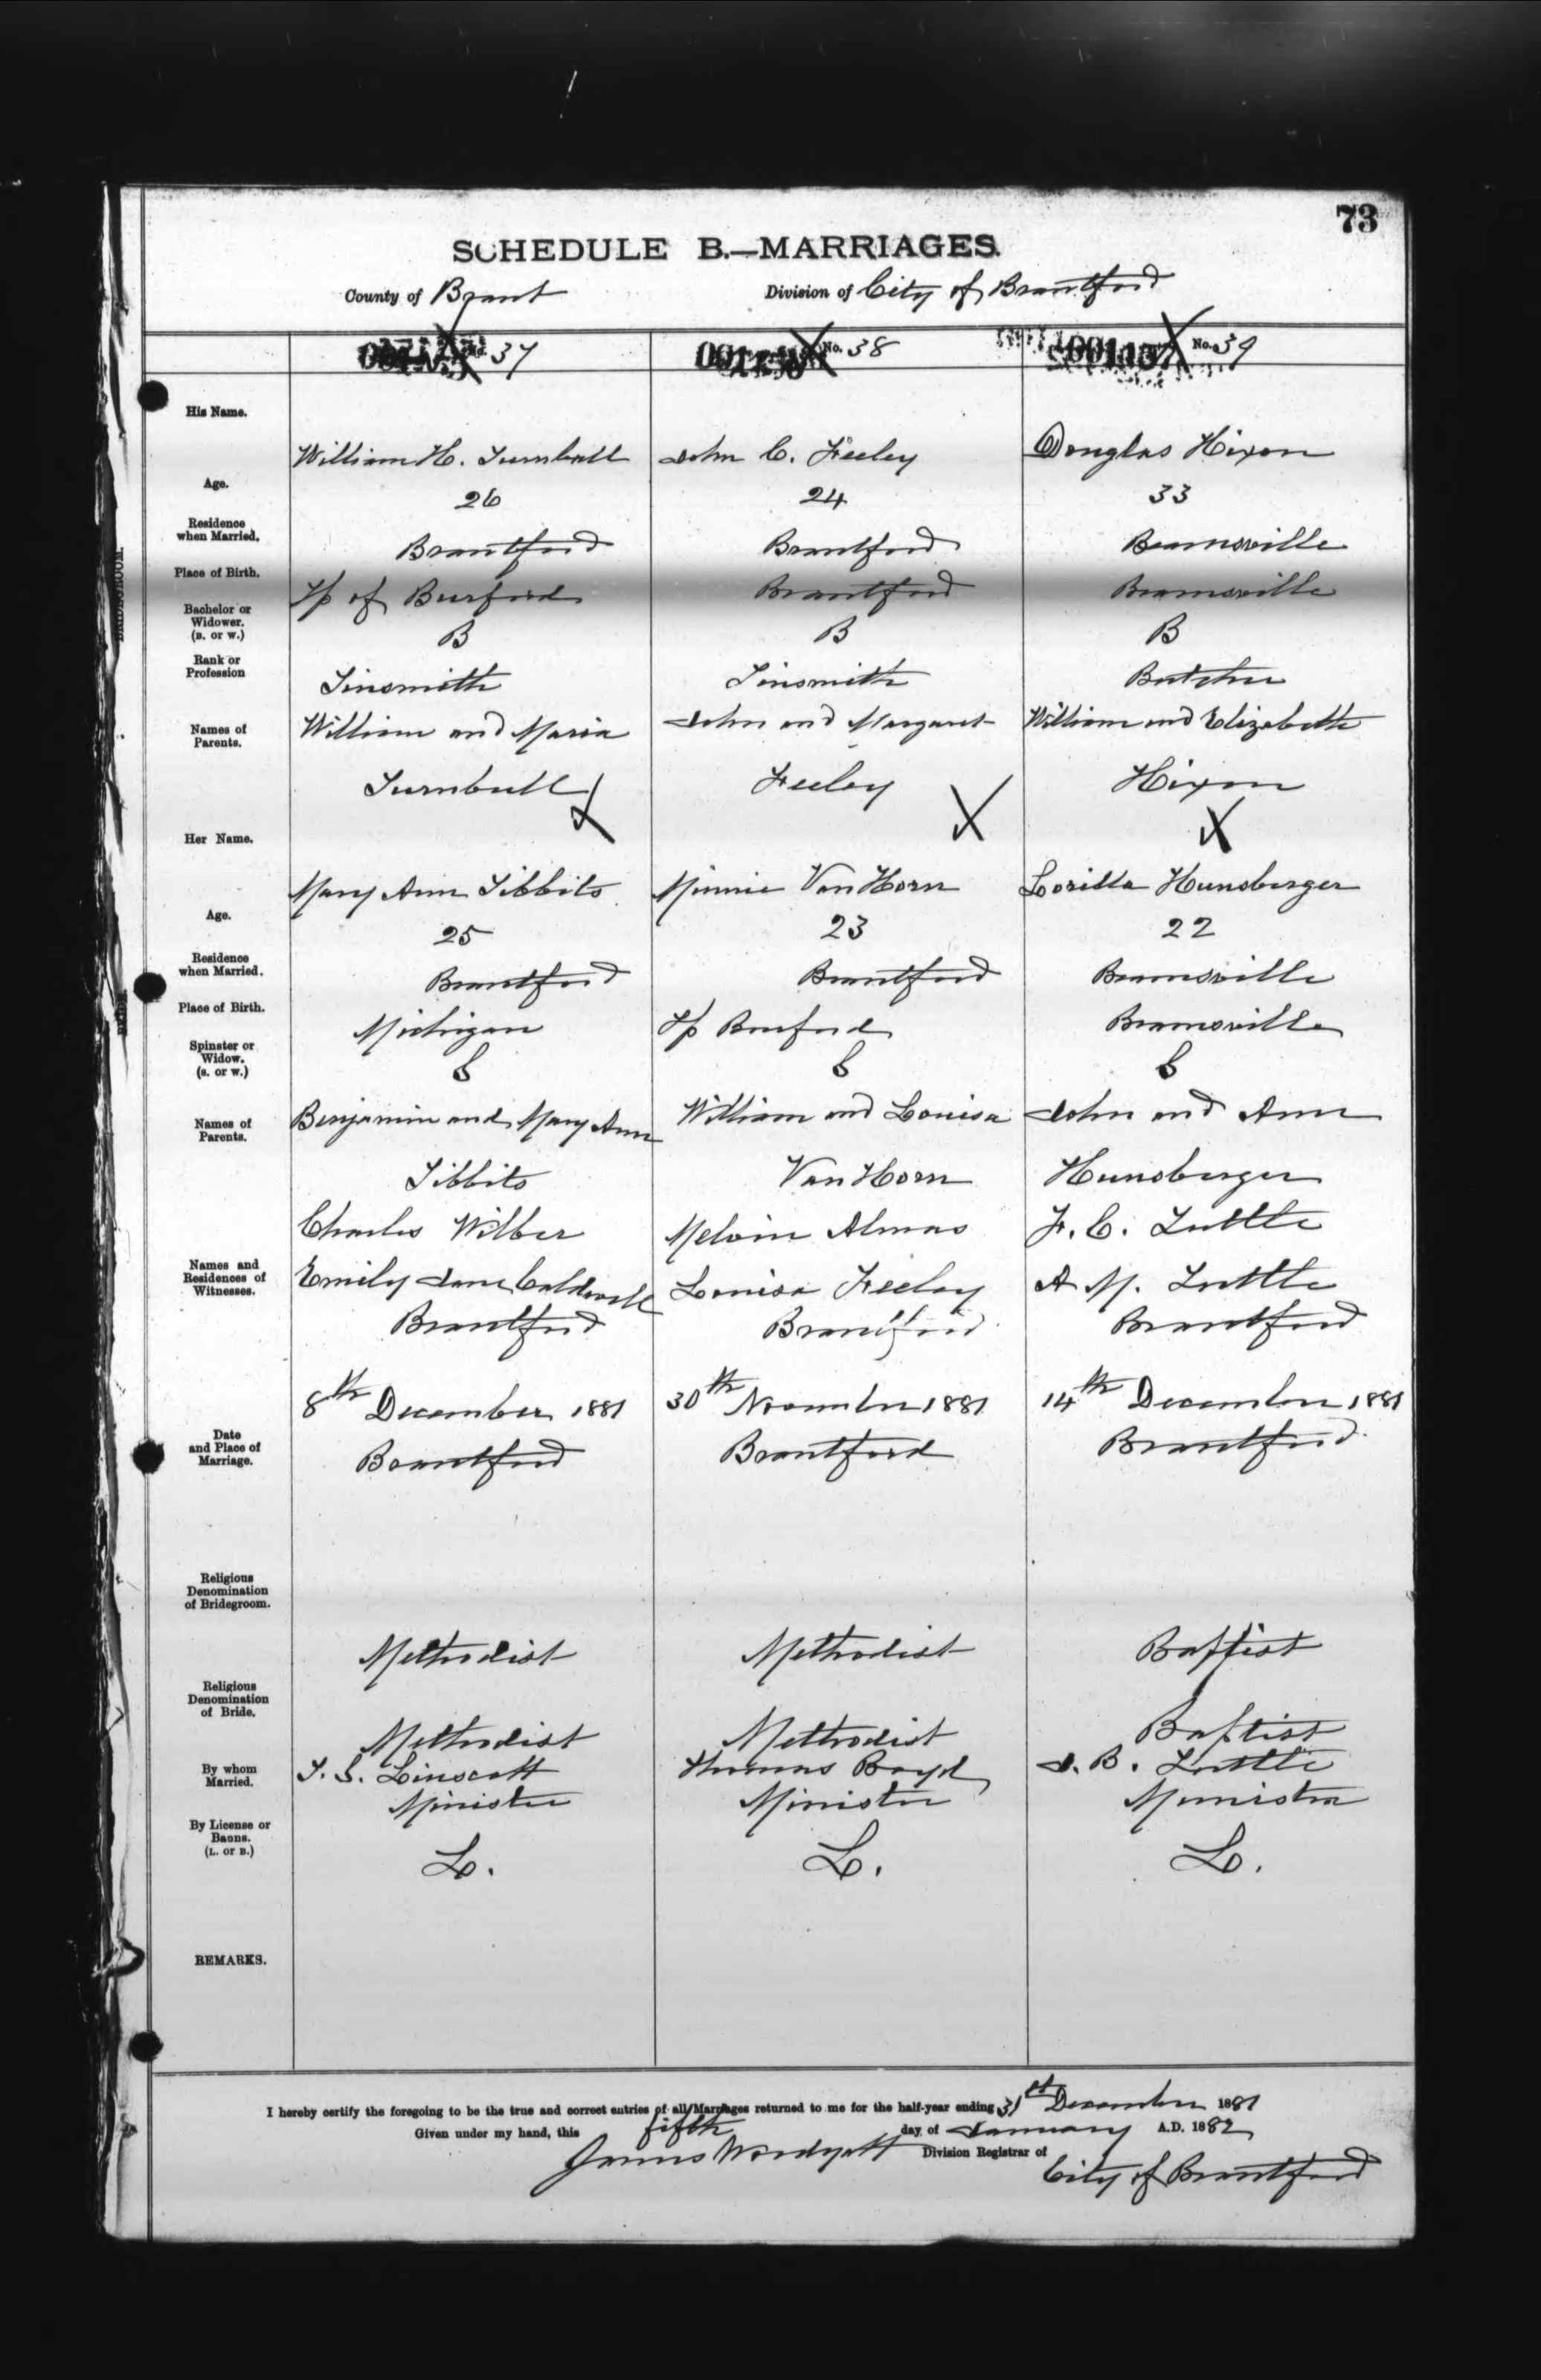 73
SCHEDULE B.—MARRIAGES.
County of Brant Division of City of Brantford
No. 37 No. 38 No. 39
His Name. William H. Turnbull John C. Feeley Douglas Hixon
Age. 26 24 33
Residence when Married. Brantford Brantford Beamsville
Place of Birth. Tp of Burford Brantford Beamsville
Bachelor or Widower. (B. or W.) B B B
Rank or Profession Tinsmith Tinsmith Butcher
Names of Parents. William and Maria John and Margaret William and Elizabeth
Turnbull Feeley Hixon
X X X
Her Name. Mary Ann Tibbits Minnie VanHorn Lorilla Hunsberger
Age. 25 23 22
Residence when Married. Brantford Brantford Beamsville
Place of Birth. Michigan Tp Burford Beamsville
Spinster or Widow. (S. or W.) S S S
Names of Parents. Benjamin and Mary Ann William and Louisa John and Ann
Tibbits VanHorn Hunsberger
Charles Wilber Melvin Almas F. C. Tuttle
Names and Residences of Witnesses. Emily Jane Caldwell Louisa Feeley A M. Tuttle
Brantford Brantford Brantford
8th December 1881 30th November 1881 14th December 1881
Date and Place of Marriage. Brantford Brantford Brantford
Religious Denomination of Bridegroom. Methodist Methodist Baptist
Religious Denomination of Bride. Methodist Methodist Baptist
By whom Married. T. S. Linscott Thomas Boyd J. B. Tuttle
Minister Minister Minister
By License or Banns. (L. or B.) L. L. L.
REMARKS.
I hereby certify the foregoing to be the true and correct entries of all Marriages returned to me for the half-year ending 31st December 1881
Given under my hand, this fifth day of January A.D. 1882
James Woodyatt Division Registrar of City of Brantford